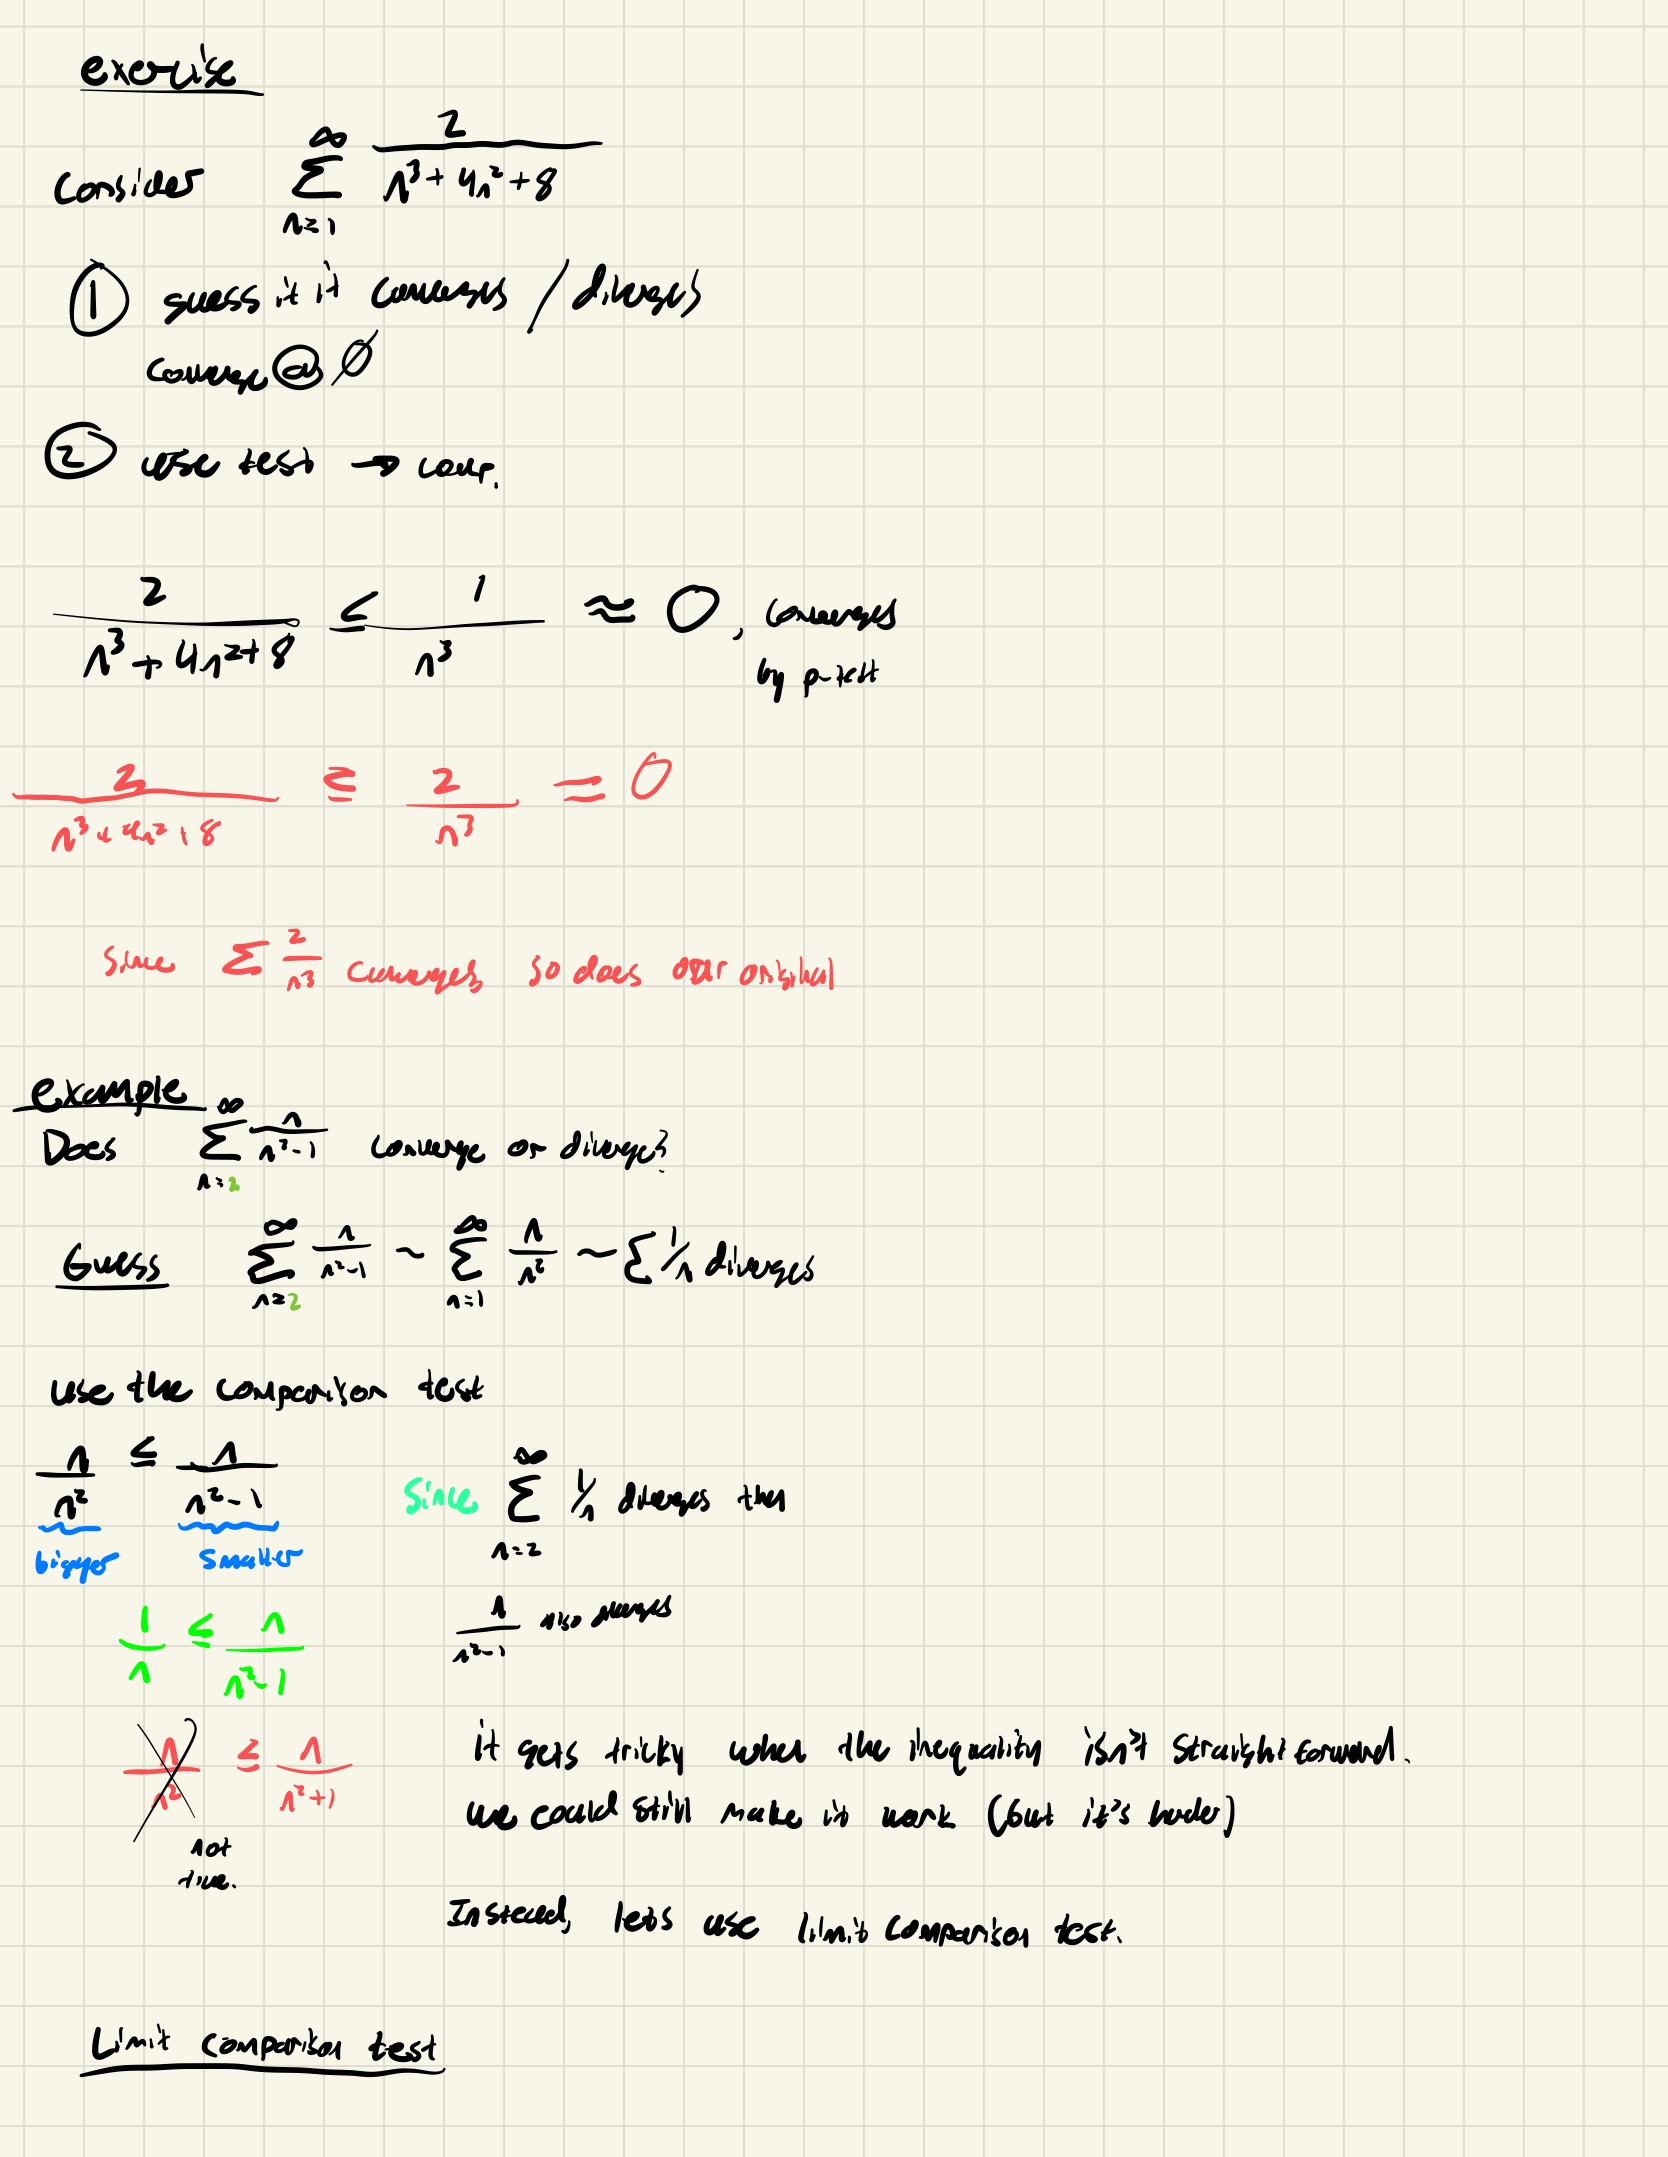 exercise
Consider ∞ Σ n=1 2/(n³ + 4n² + 8)
① guess if it converges / diverges
converge @ 0
② use test → comp.
2/(n³ + 4n² + 8) ≤ 1/n³ ≈ 0, converges
by p-test
2/(n³ + 4n² + 8) ≤ 2/n³ ≈ 0
Since Σ 2/n³ converges so does our original
example
Does ∞ Σ n=2 n/(n²-1) converge or diverge?
Guess ∞ Σ n=2 n/(n²-1) ~ ∞ Σ n=1 n/n² ~ Σ 1/n diverges
use the comparison test
n/n² ≤ n/(n²-1)
bigger smaller
Since ∞ Σ n=2 1/n diverges then
1/n ≤ n/(n²-1)
n/(n²-1) also diverges
n/n² ≤ n/(n²+1)
not
true.
it gets tricky when the inequality isn't straight forward.
we could still make it work (but it's harder)
Instead, lets use limit comparison test.
Limit comparison test